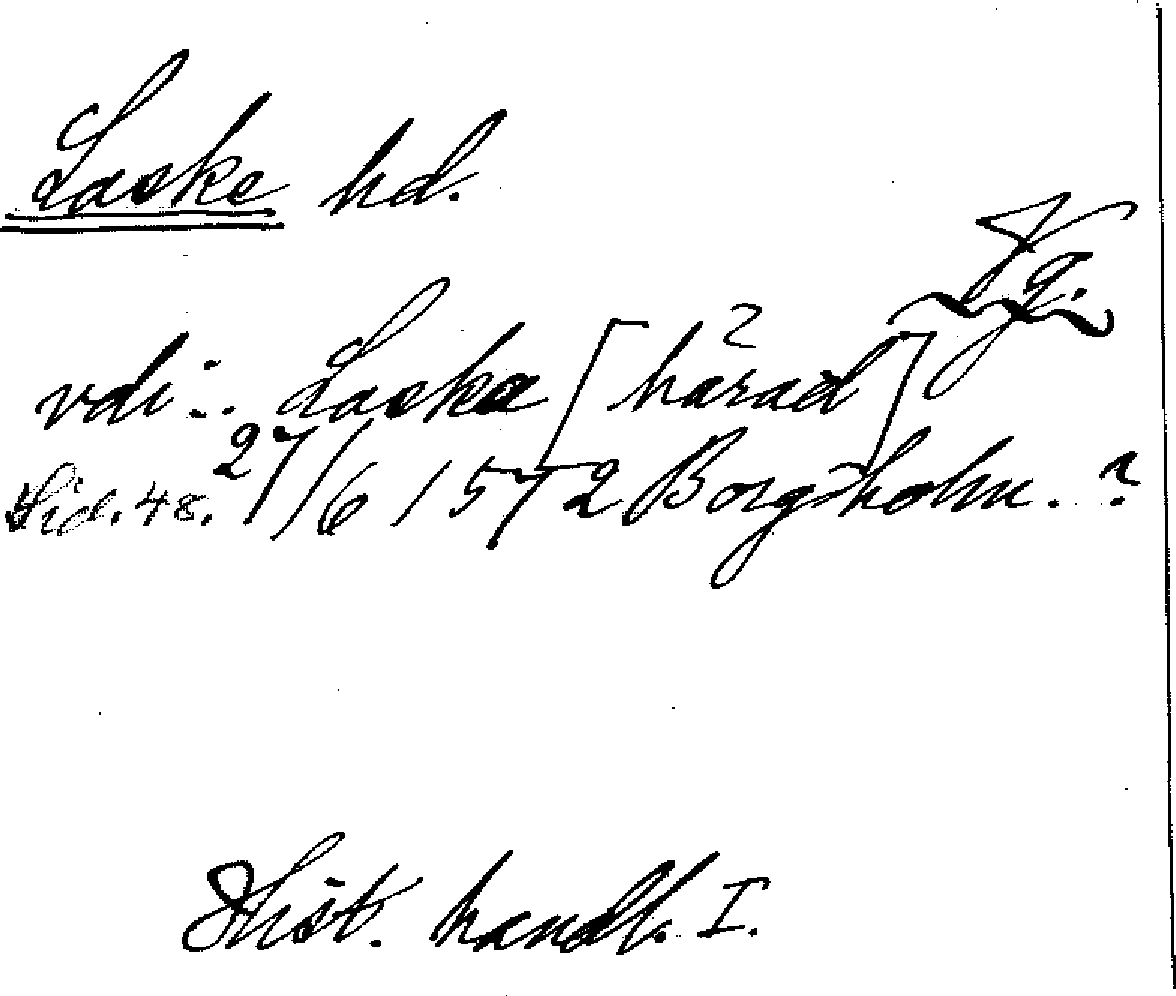 Laske hd.
Vg.
vdi :. Laska [härad]
Sid. 48. 27/6 1572 Borgholm. ?
Hist. handl. I.